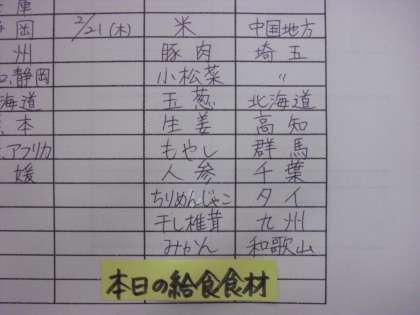 庫
岡 2/21(木) 米 中国地方
州 豚肉 埼玉
静岡 小松菜 〃
海道 玉葱 北海道
本 生姜 高知
アフリカ もやし 群馬
媛 人参 千葉
ちりめんじゃこ タイ
干し椎茸 九州
みかん 和歌山
本日の給食食材